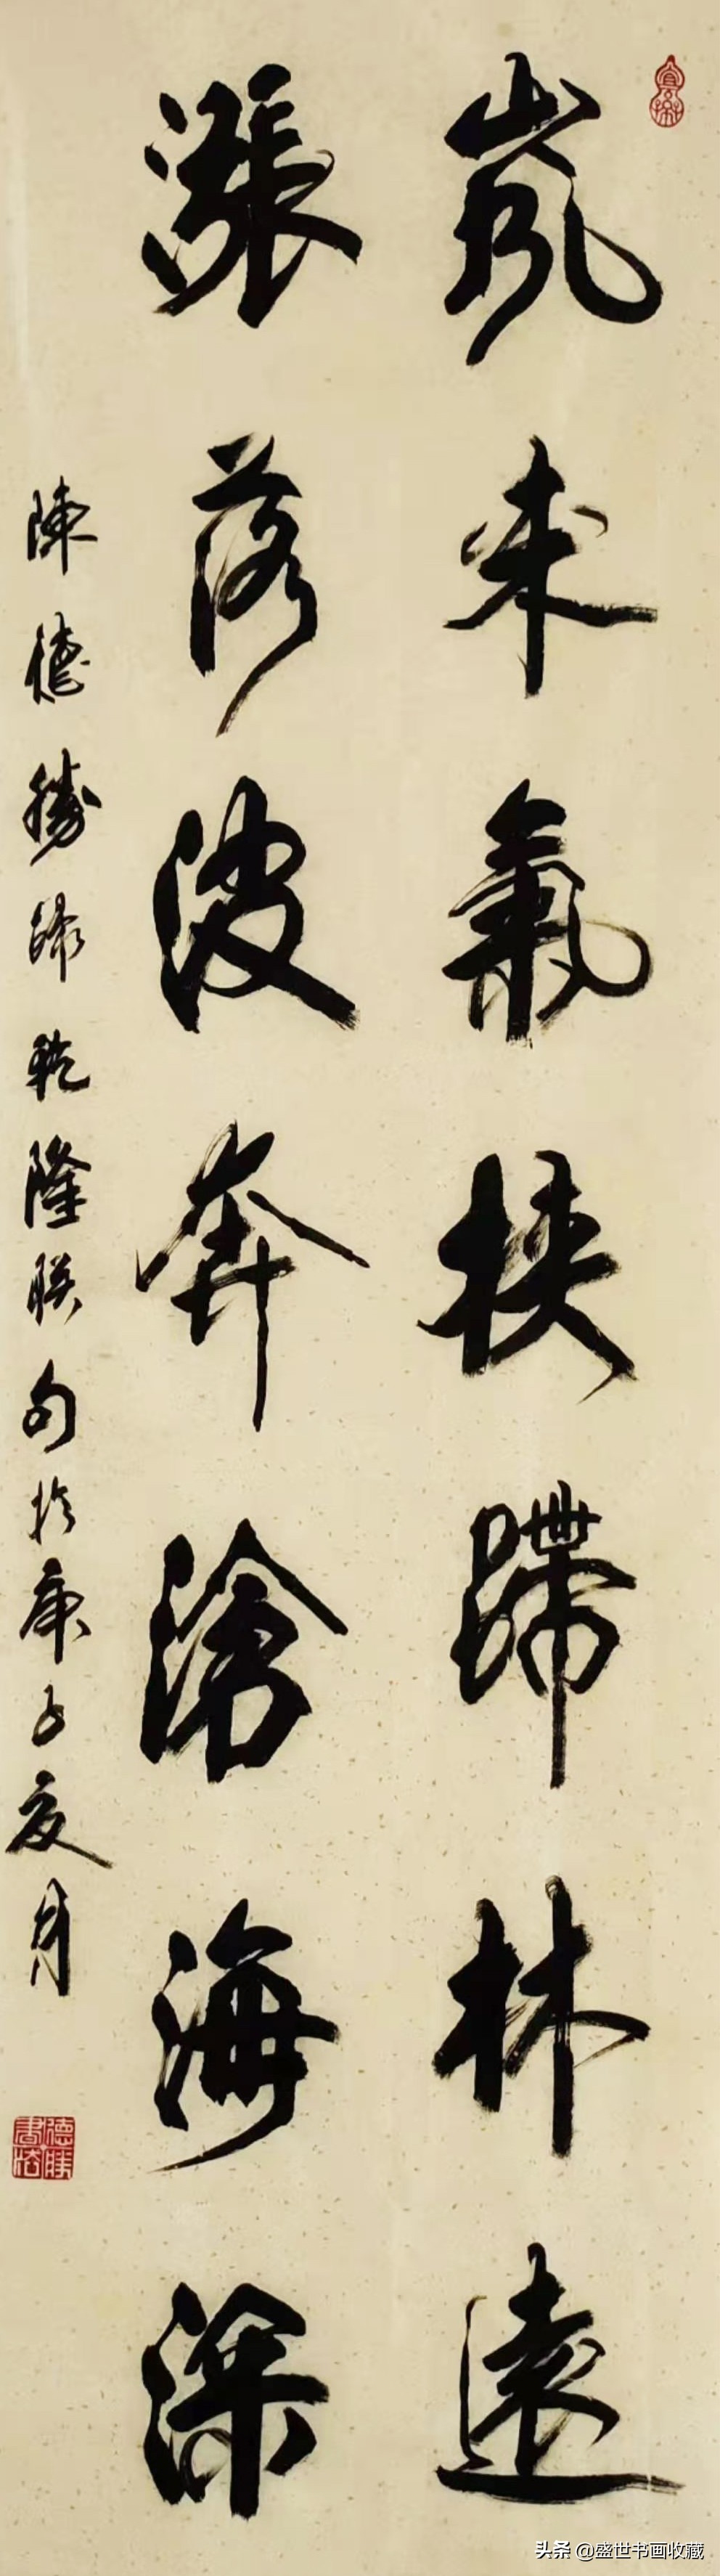 嵐来氣挟蹛林遠
漲落波奔滄海深
陳德勝錄乾隆联句於庚子夏月
德勝書法
头条 @盛世书画收藏